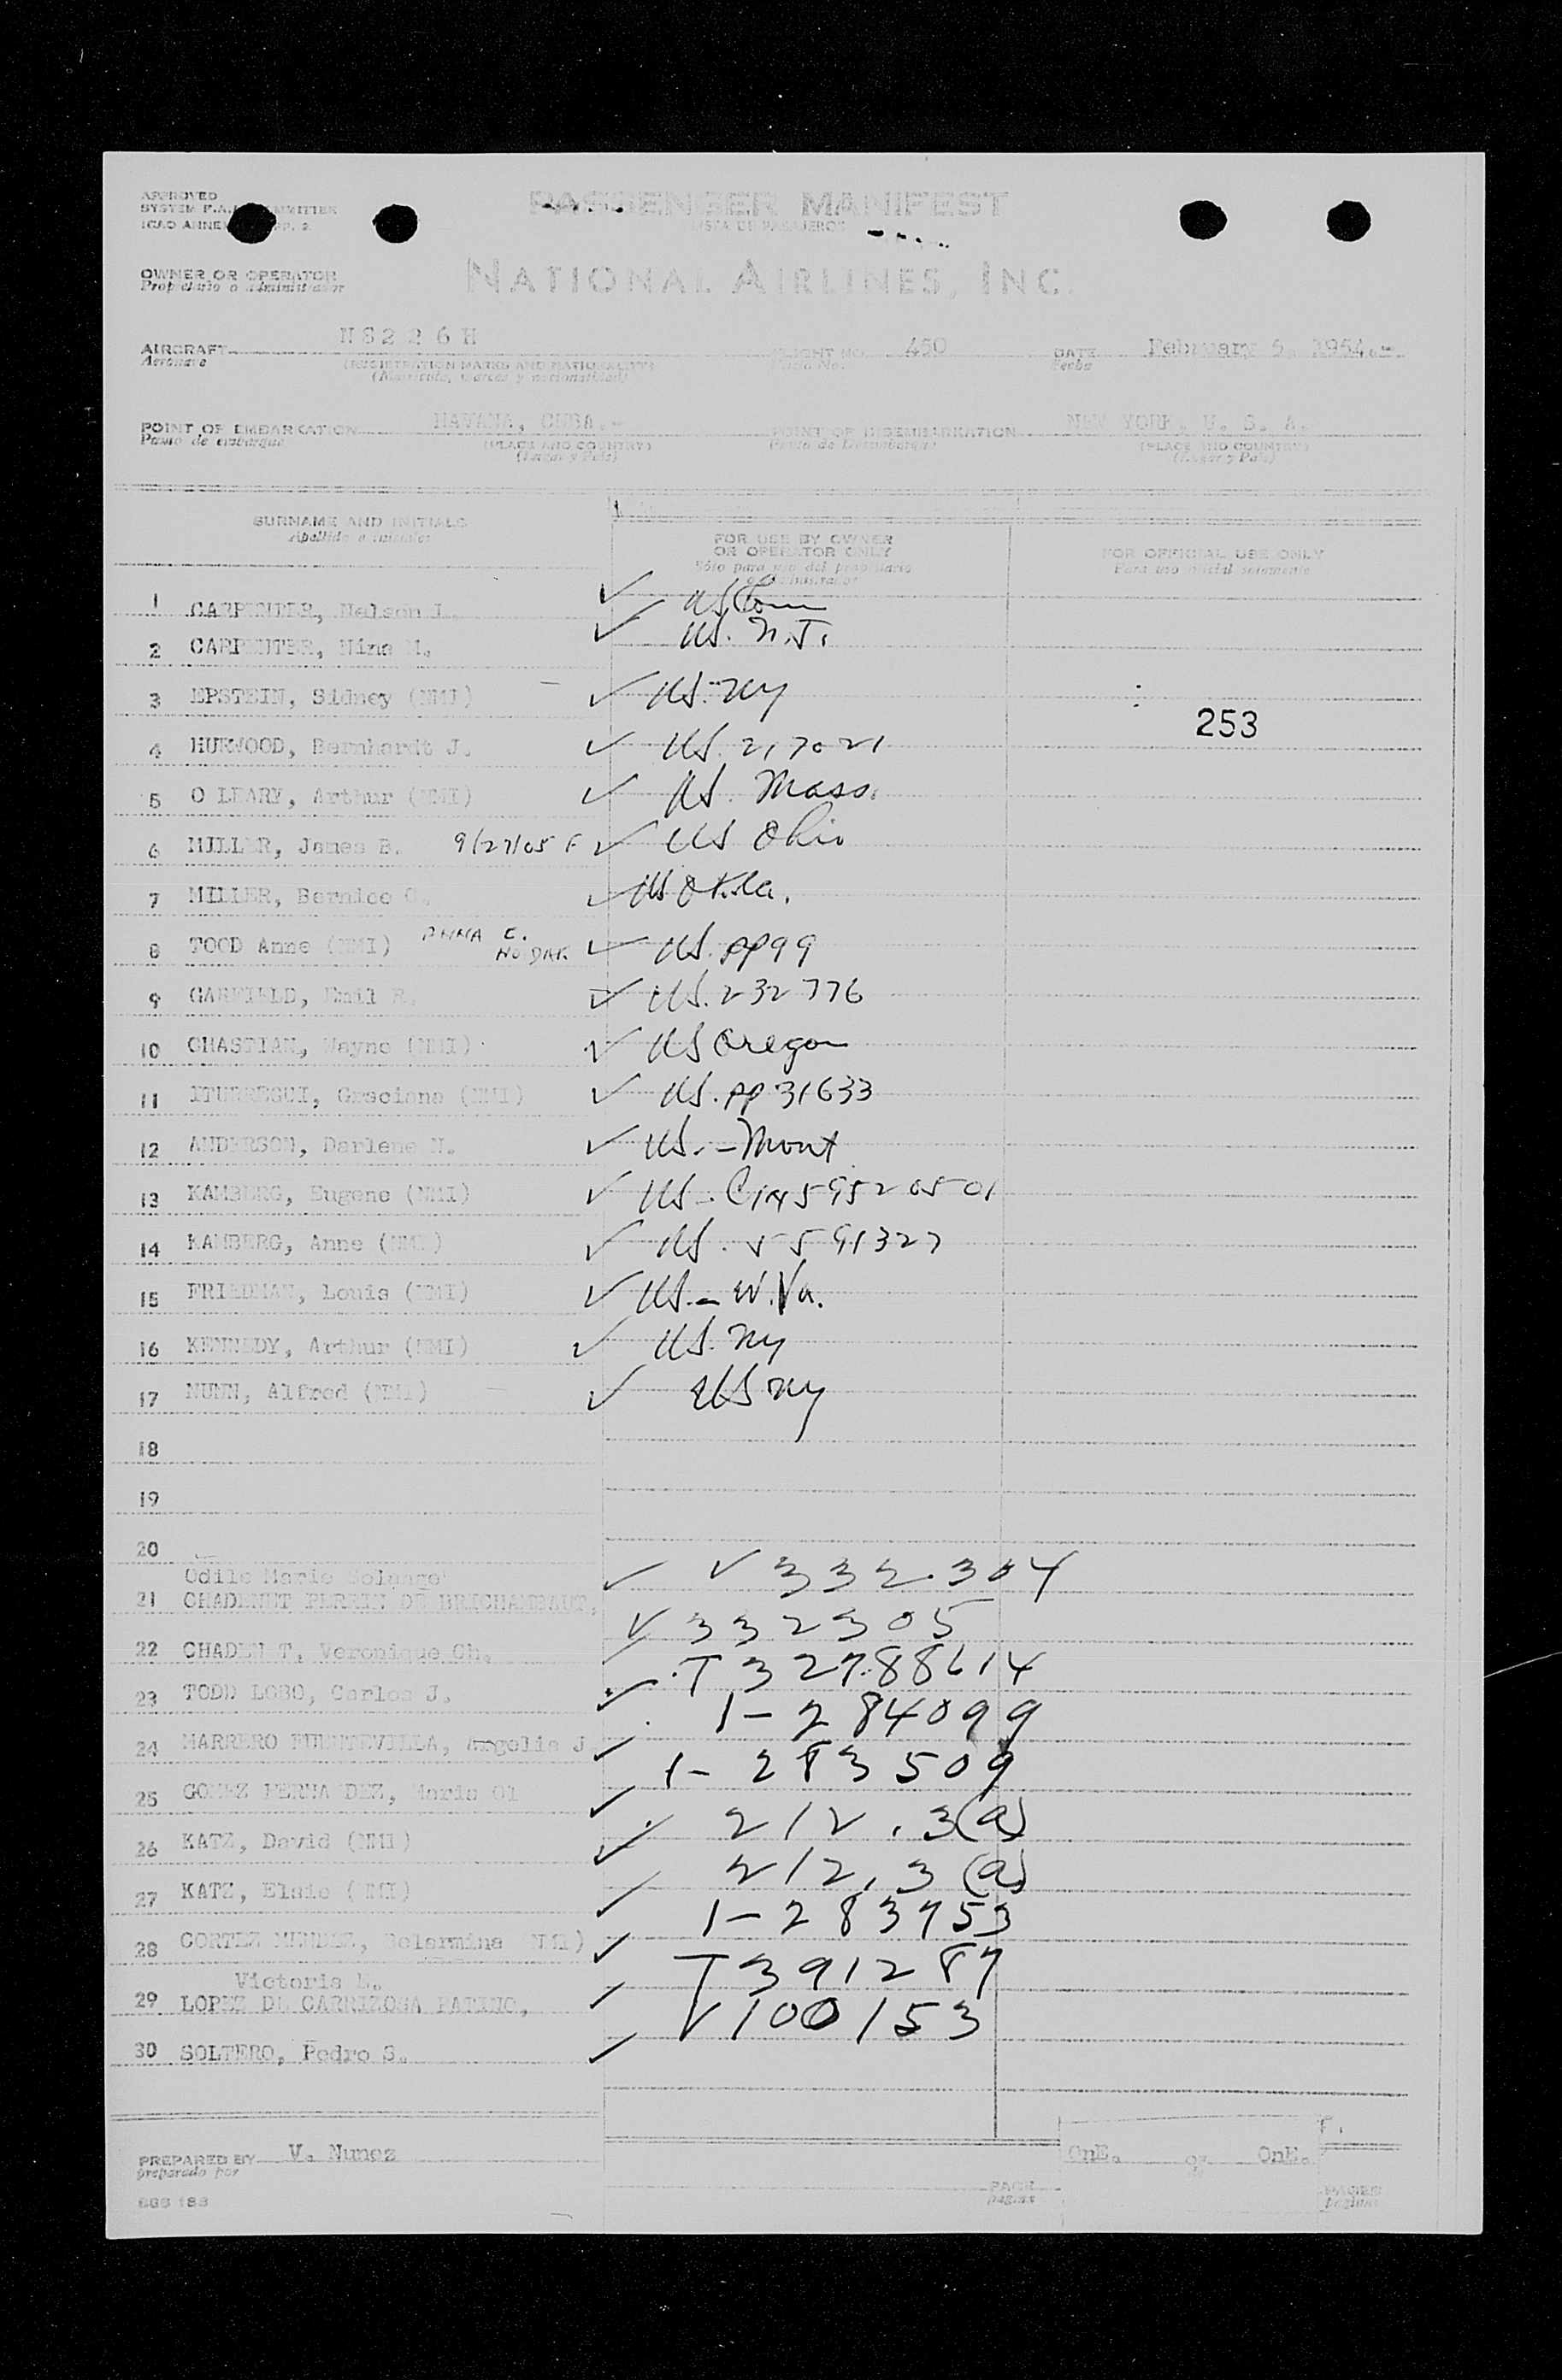 APPROVED
PASSENGER MANIFEST
LISTA DE PASAJEROS
OWNER OR OPERATOR
NATIONAL AIRLINES, INC.
AIRCRAFT N8226H FLIGHT NO. 450 DATE February 5, 1954.-
Aeronave (REGISTRATION MARKS AND NATIONALITY) Fecha
(Matricula, marcas y nacionalidad)
POINT OF EMBARKATION HAVANA, CUBA.- POINT OF DISEMBARKATION NEW YORK, U. S. A.
(PLACE AND COUNTRY) (PLACE AND COUNTRY)
(Lugar y País) (Lugar y País)
SURNAME AND INITIALS
Apellido e iniciales
FOR USE BY OWNER OR OPERATOR ONLY
FOR OFFICIAL USE ONLY
Para uso oficial solamente
1 CARPENTER, Nelson L. ✓ US Conn
2 CARPENTER, Nina M. ✓ US. N.J.
3 EPSTEIN, Sidney (NMI) ✓ US. NY
253
4 HURWOOD, Bernhardt J. ✓ US. 217021
5 O LEARY, Arthur (NMI) ✓ US. Mass.
6 MILLER, James B. 9/27/05 ✓ US Ohio
7 MILLER, Bernice ✓ US Okla.
8 TODD Anne (NMI) ANNA E. NO DAK. ✓ US. pp99
9 GARFIELD, Emil R. ✓ US. 232776
10 CHASTIAN, Wayne (NMI) ✓ US Oregon
11 ITURREGUI, Graciana (NMI) ✓ US. pp 31633
12 ANDERSON, Darlene N. ✓ US. - Mont
13 KAMBERG, Eugene (NMI) ✓ US.
14 KAMBERG, Anne (NMI) ✓ US. 5591327
15 FRIEDMAN, Louis (NMI) ✓ US. - W. Va.
16 KENNEDY, Arthur (NMI) ✓ US. NY
17 NUNN, Alfred (NMI) ✓ US NY
18
19
20
Odile Marie Solange
21 CHADENET PERRIN DE BRICHAMBAUT, ✓ V 332304
22 CHADENET, Veronique Ch. V 332305
23 TODD LOBO, Carlos J. ✓ T 32788614
24 MARRERO FUENTEVILLA, Argelia J. ✓ 1-284099
25 GOMEZ FERNANDEZ, Maria ✓ 1-283509
26 KATZ, David (NMI) ✓ 212.3(a)
27 KATZ, Elsie (NMI) ✓ 212.3(a)
28 CORTEZ MENDEZ, Belarmina (NMI) ✓ 1-283753
Victoria L.
29 LOPEZ DE CARRIZOSA PATINO, ✓ T 391287
30 SOLTERO, Pedro S. ✓ V 100153
PREPARED BY V. Nunez
preparado por
PAGE OnE. OF OnE. PAGES